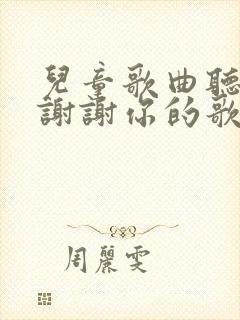 兒童歌曲聽
謝謝你的歌
周麗雯